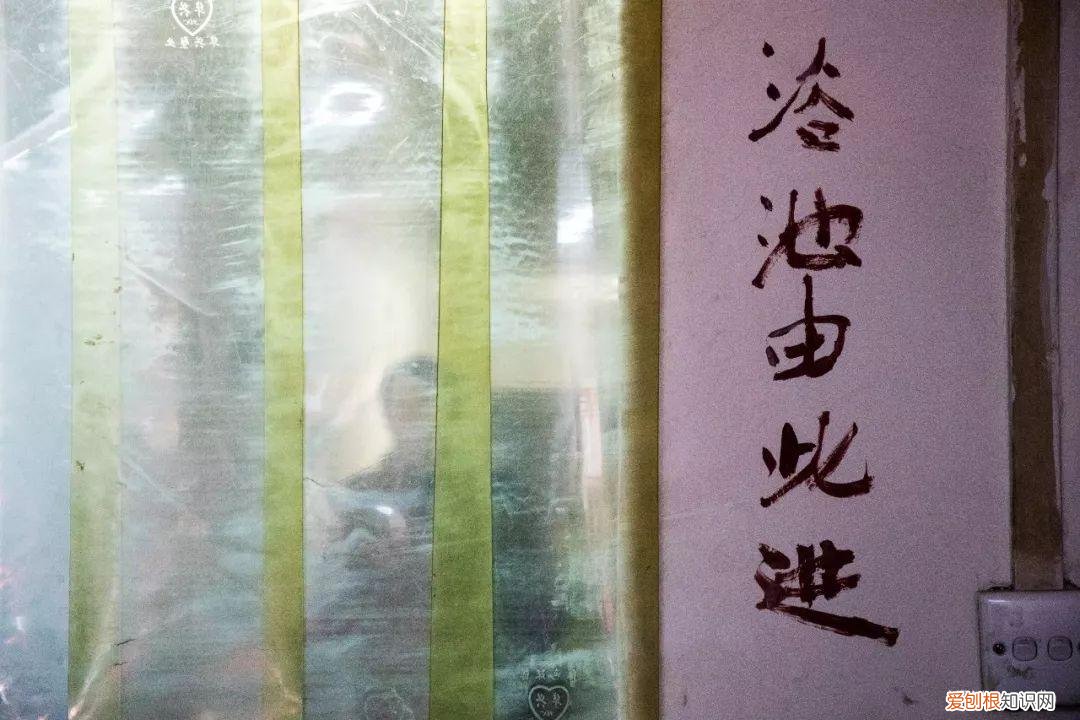 浴池由此进
爱刨根知识网